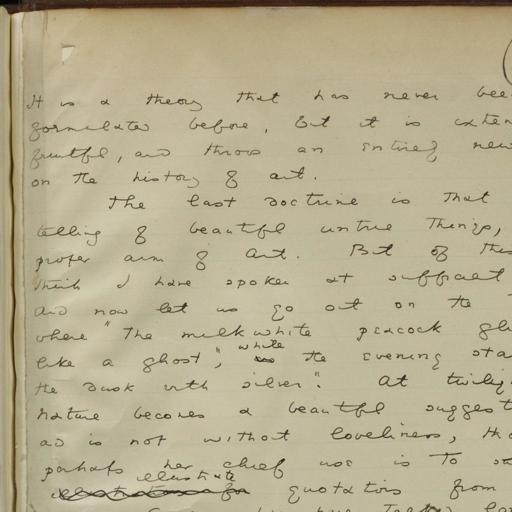 It is a theory that has never bee
formulated before, but it is extem
fruitful, and throws an entirely new
on the history of art.
The last doctrine is that
telling of beautiful untrue things,
proper aim of Art. But of this
think I have spoken at sufficient
And now let us go out on the
where "The milk white peacock gli
like a ghost," while the evening sta
the dusk with silver". At twilig
Nature becomes a beautiful suggest
and is not without loveliness, tho
perhaps her chief use is to
illustrate
quotations from